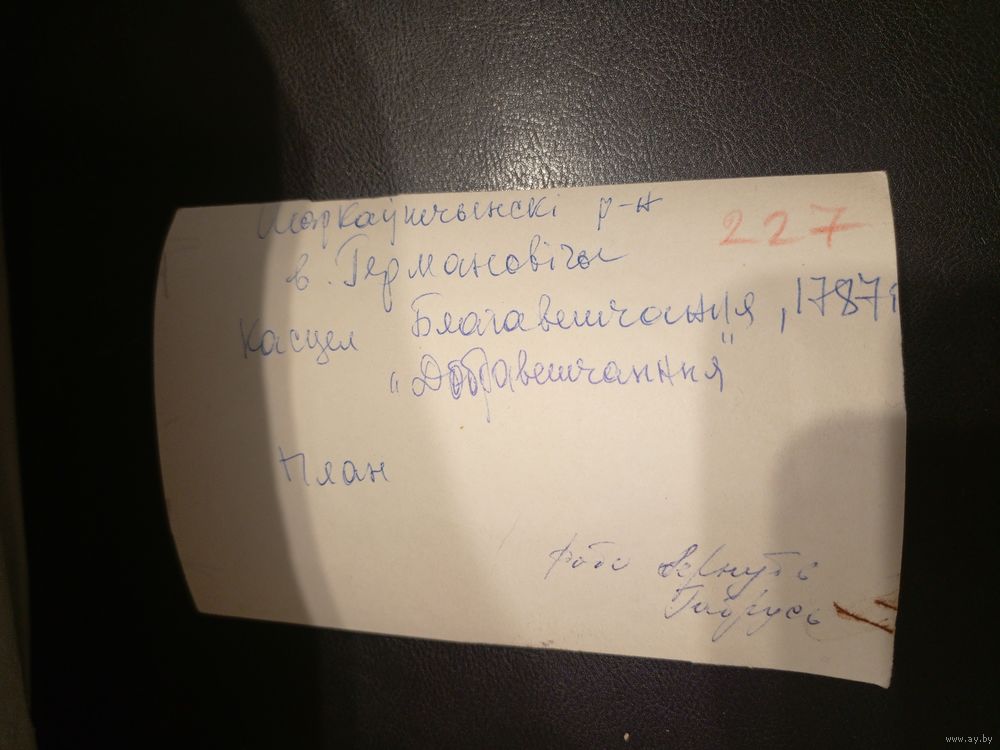 Шаркаўшчынскі р-н
227
в. Германовічы
Касцел Благавешчання, 1787г
"Добравешчання"
План
Фото вернуть
Габрусь
www.ay.by